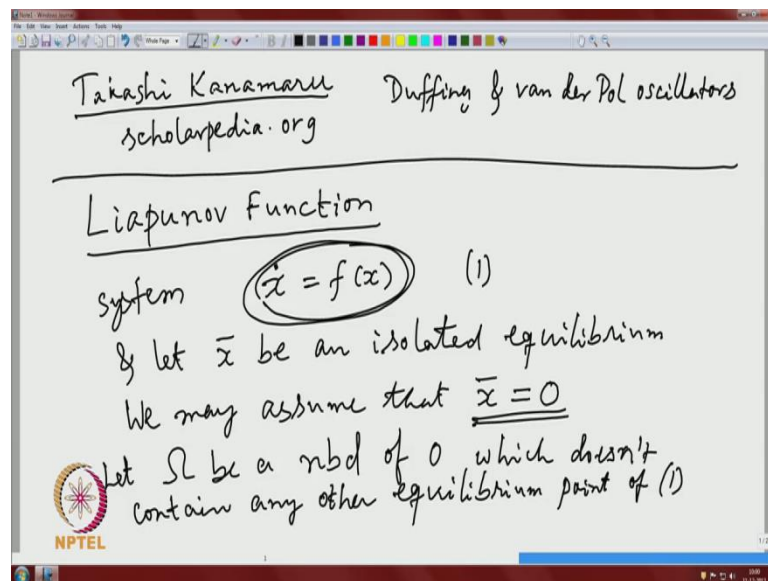 Note1 - Windows Journal
File Edit View Insert Actions Tools Help
Takashi Kanamaru Duffing & van der Pol oscillators
scholarpedia.org
Liapunov Function
system ẋ = f(x) (1)
& let x̄ be an isolated equilibrium
We may assume that x̄ = 0
Let Ω be a nbd of 0 which doesn't
contain any other equilibrium point of (1)
NPTEL
1